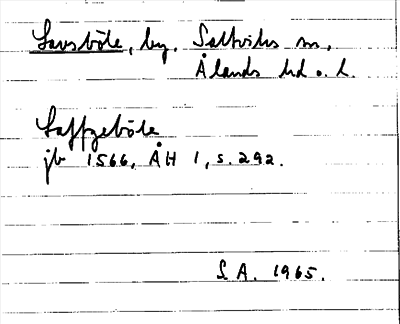 Lavsböle, by. Saltviks sn,
Ålands hd o. l.
Laffzeböle
jb 1566, ÅH 1, s. 292.
S A. 1965.